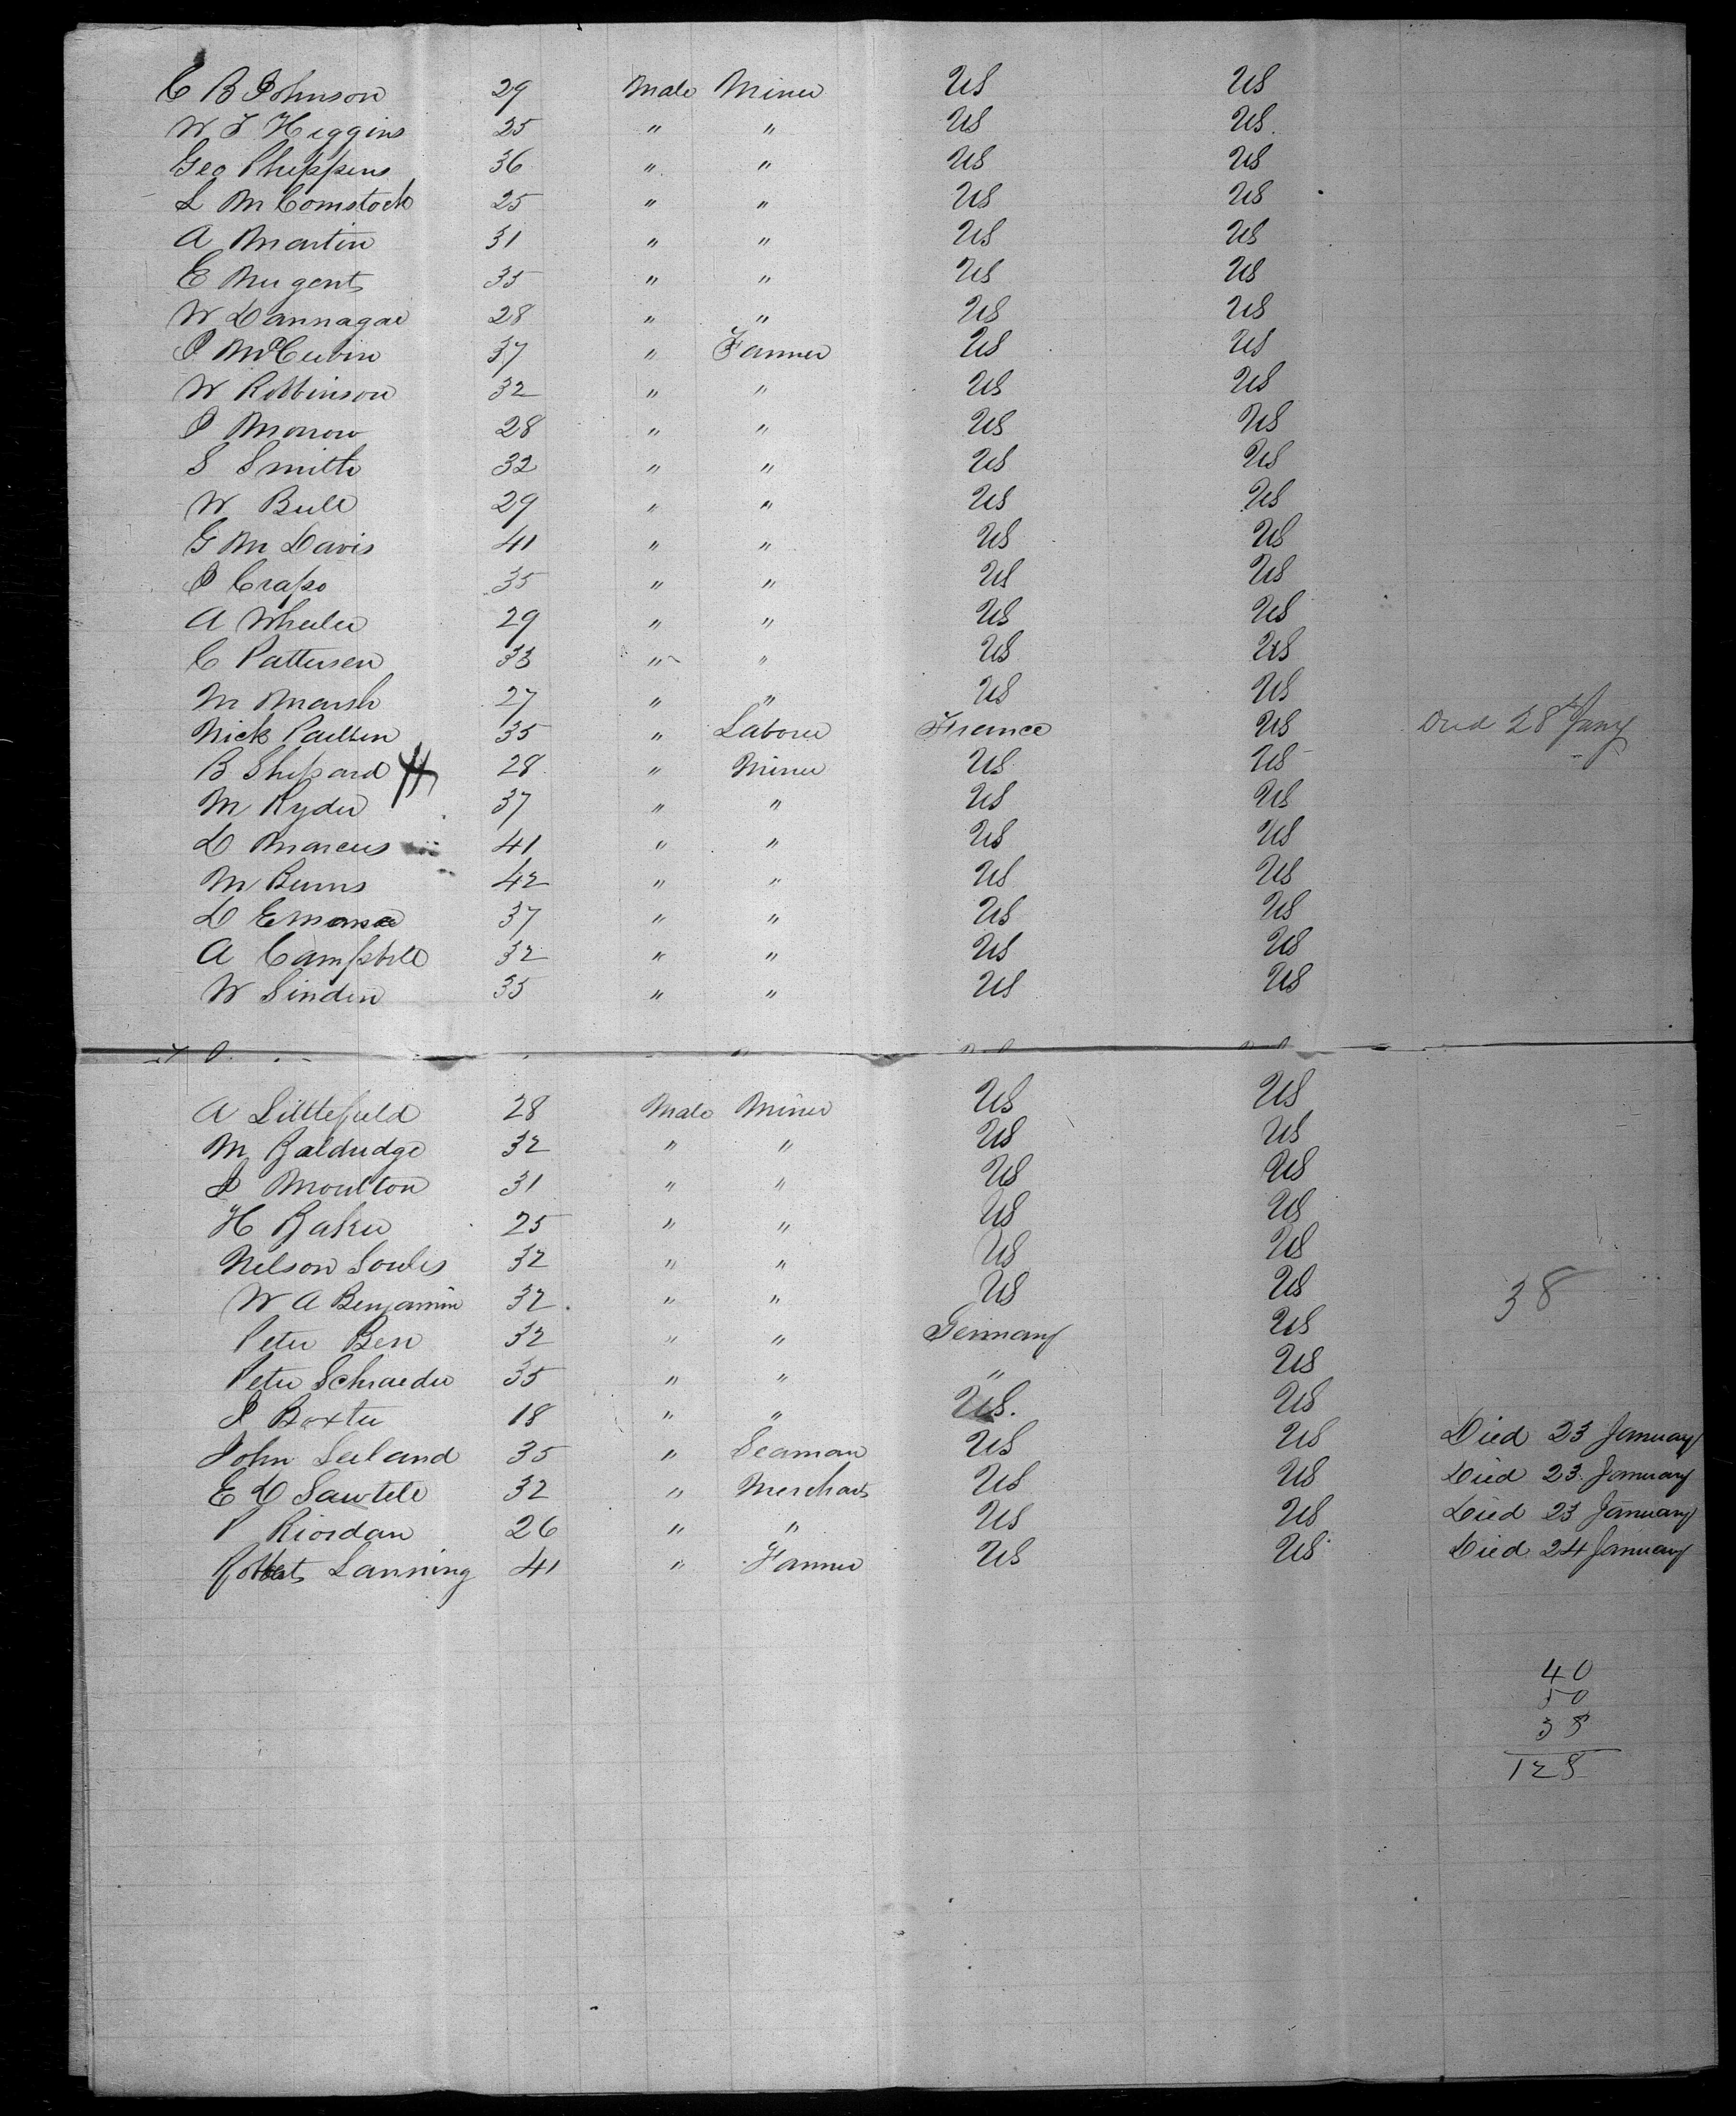 C B Johnson 29 Male Miner US US
W F Higgins 25 " " US US
Geo Phippens 36 " " US US
L M Comstock 25 " " US US
A Martin 31 " " US US
E Nugent 35 " " US US
W Dannagae 28 " " US US
J McCubin 37 " Farmer US US
W Robbinson 32 " " US US
J Morrow 28 " " US US
S Smith 32 " " US US
W Bull 29 " " US US
G M Davis 41 " " US US
J Crapo 35 " " US US
A Wheeler 29 " " US US
C Pattersen 33 " " US US
M Marsh 27 " " US US
Nick Paulsen 35 " Laborer France US Died 28th Jany
B Shepard 28 " Miner US US
M Ryder 37 " " US US
D Marcus 41 " " US US
M Burns 42 " " US US
D 37 " " US US
A Campbell 32 " " US US
W Sinden 35 " " US US
A Littlefield 28 Male Miner US US
M Baldridge 32 " " US US
J Moulton 31 " " US US
H Baker 25 " " US US
Nelson Soules 32 " " US US
W A Benjamin 32 " " US US 38
Peter Ben 32 " " Germany US
Peter Schraeder 35 " " " US
J Baxter 18 " " US. US
John Leeland 35 " Seaman US US Died 23 January
E D Sawtell 32 " Merchant US US Died 23 January
P Riordan 26 " " US US Died 23 January
Robbert Lanning 41 " Farmer US US Died 24 January
40
50
38
128